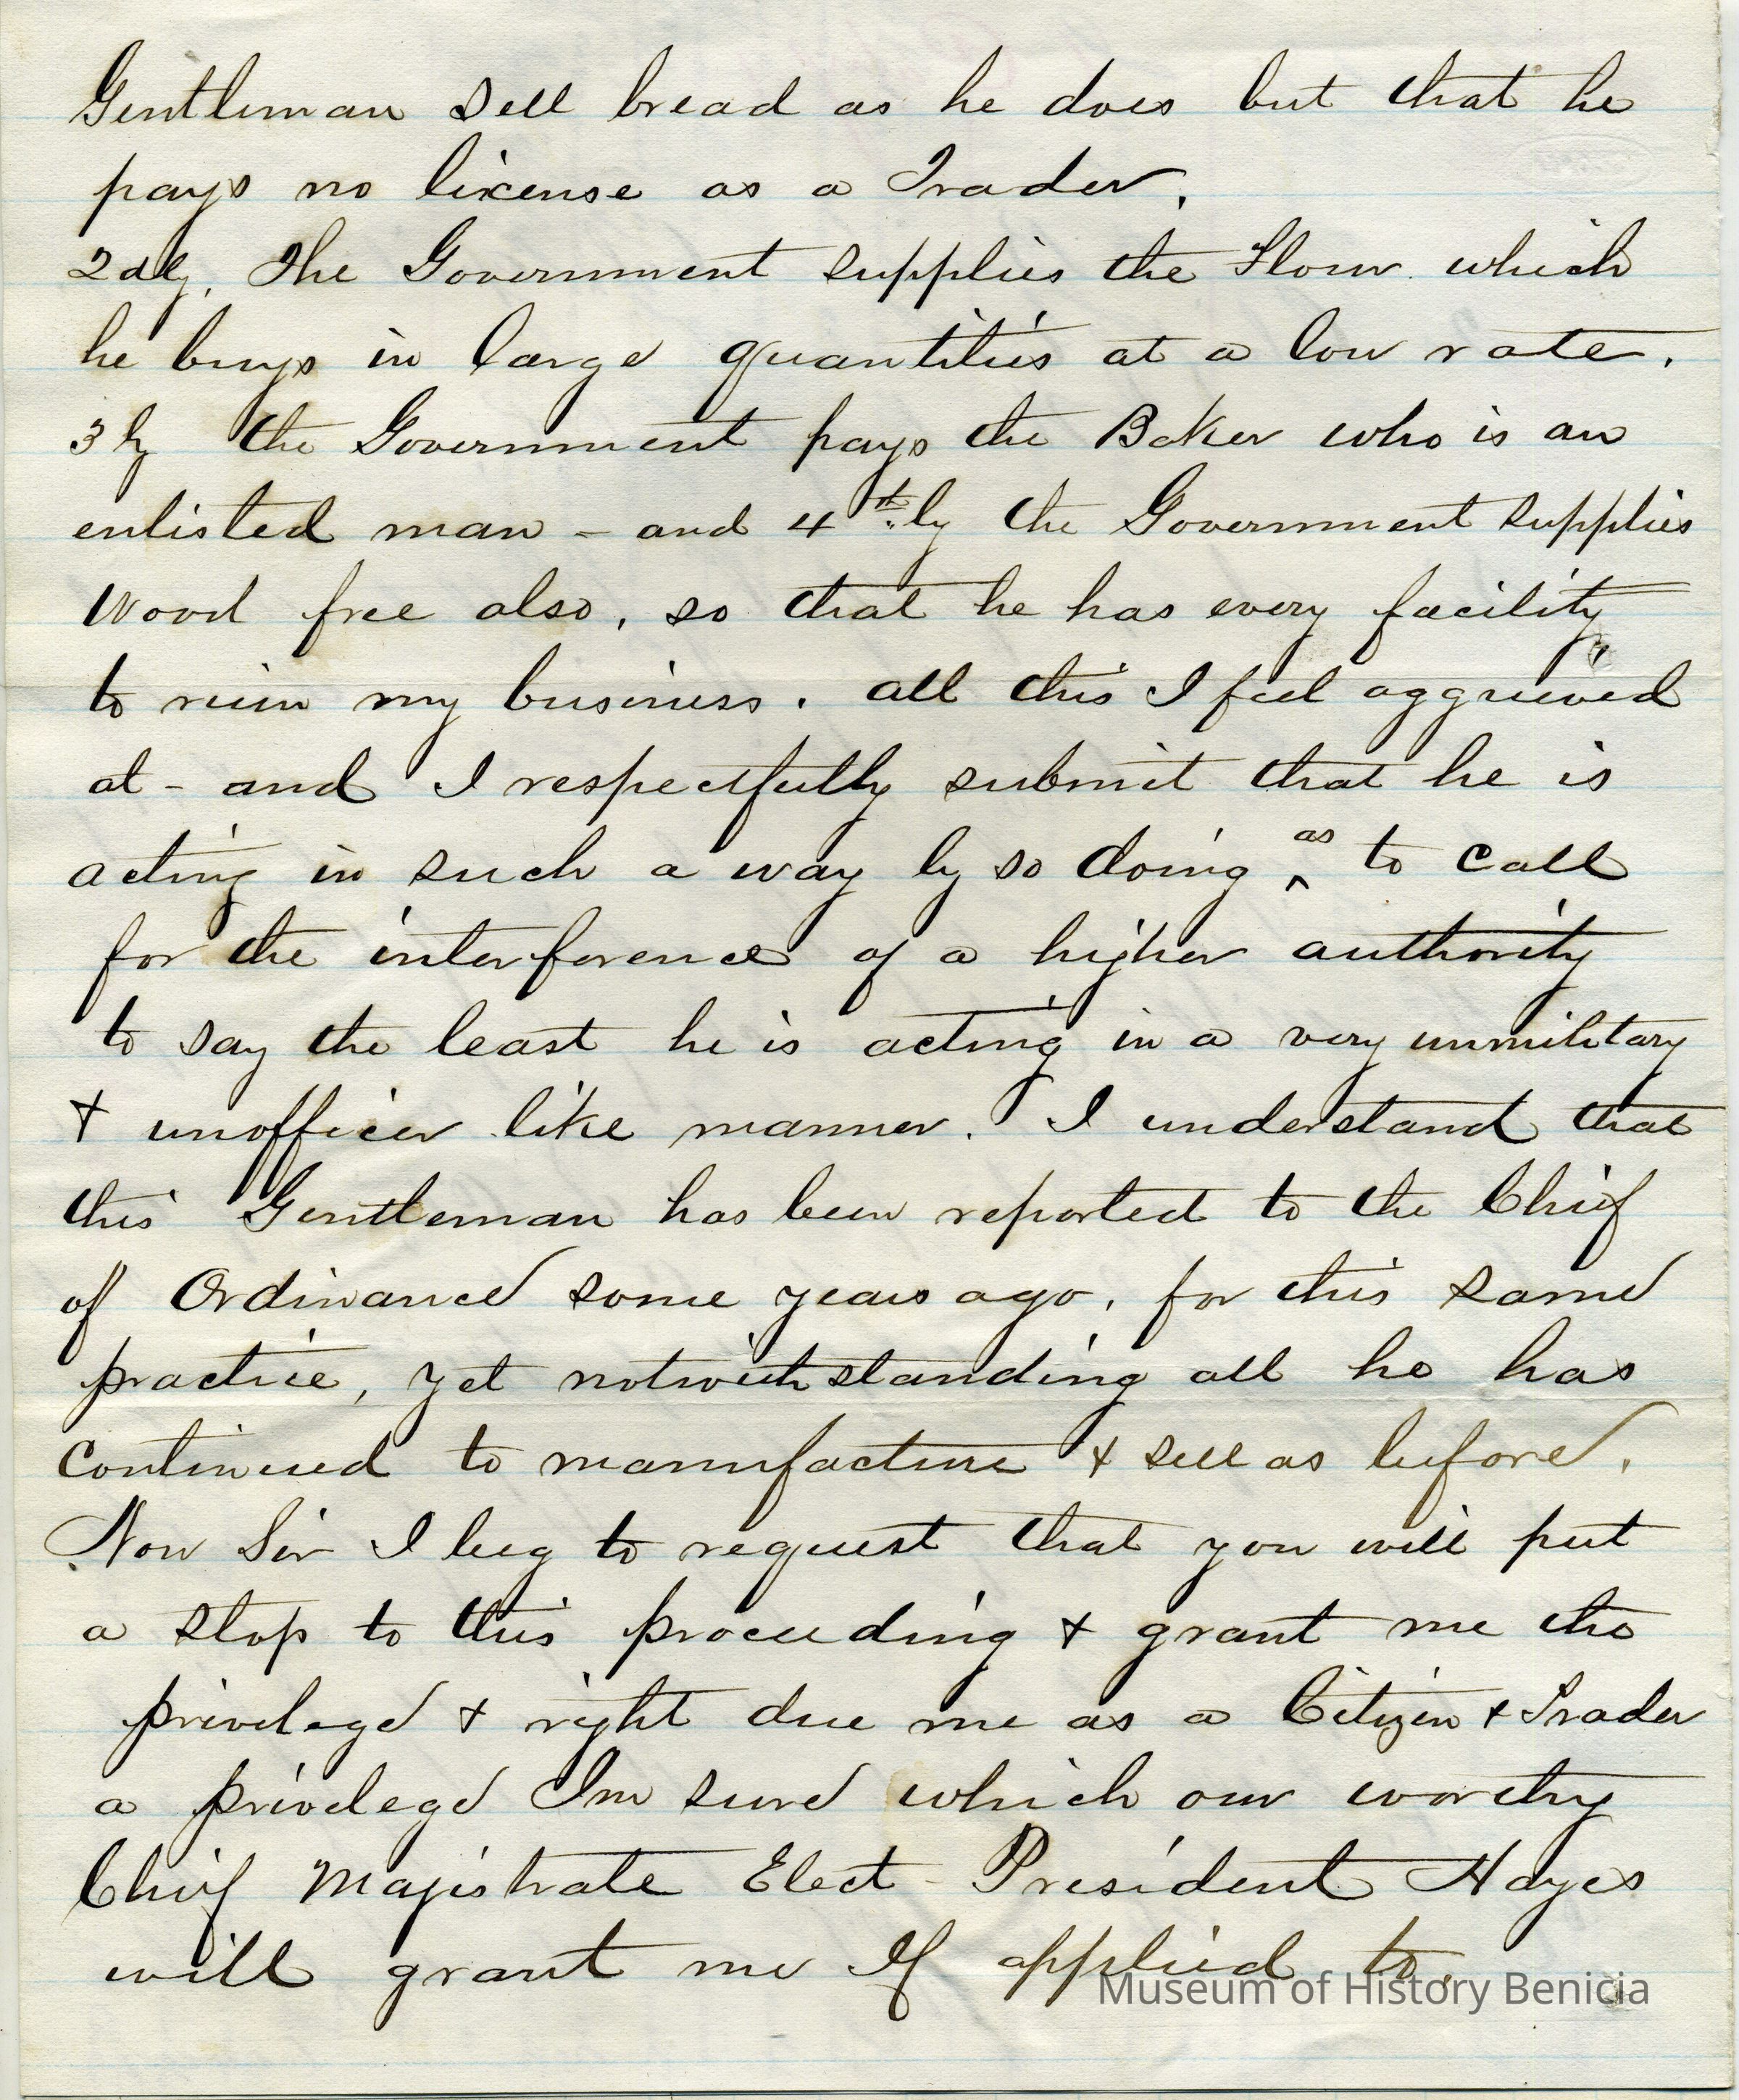 Gentleman sell bread as he does but that he
pays no license as a Trader.
2dly. The Government supplies the Flour which
he buys in large quantities at a low rate.
3ly the Government pays the Baker who is an
enlisted man - and 4th.ly the Government supplies
Wood free also, so that he has every facility
to ruin my business. all this I feel aggrieved
at - and I respectfully submit that he is
acting in such a way by so doing ^as to call
for the interference of a higher authority
to say the least he is acting in a very unmilitary
& unofficer like manner. I understand that
this Gentleman has been reported to the Chief
of Ordinance some years ago, for this same
practice, yet notwithstanding all he has
continued to manufacture & sell as before.
Now Sir I beg to request that you will put
a stop to this proceeding & grant me the
privilege & right due me as a Citizen & Trader
a privelege Im sure which our worthy
Chief Magistrate Elect - President Hayes
will grant me If applied to.
Museum of History Benicia